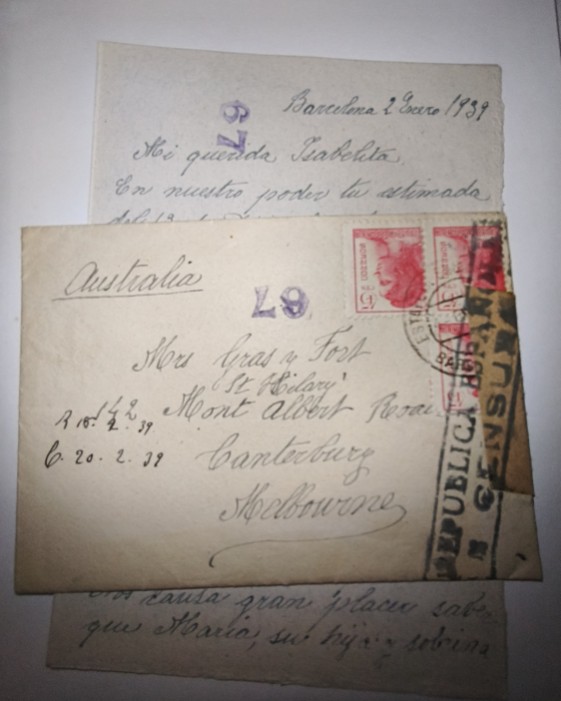 67
Barcelona 2 Enero 1939
Mi querida Isabelita.
En nuestro poder tu estimada
Australia
67
45
45
45
Mrs Gras y Fort
"St Hilary"
Mont Albert Road
Canterbury
Melbourne
R 18. 2. 39
C. 20. 2. 39
REPUBLICA ESPAÑOLA
CENSURA
Nos causa gran placer saber
que Maria, su hija y sobrina